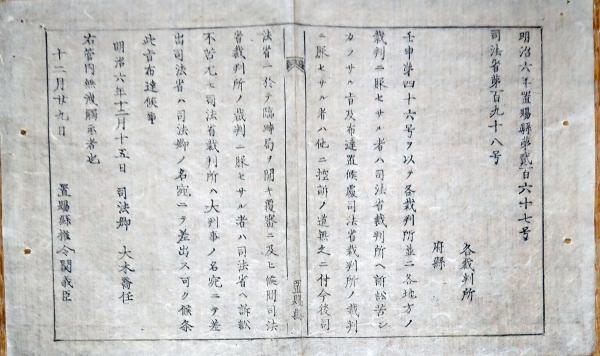 明治六年置賜縣第貳百六十七号
司法省第百九十八号
各裁判所
府縣
壬申第四十六号ヲ以テ各裁判所並ニ各地方ノ
裁判ニ服セサル者ハ司法省裁判所ヘ訴訟苦シ
カラサル旨及布達置候處司法省裁判所ノ裁判
ニ服セサル者ハ他ニ控訴ノ道無之ニ付今後司
置賜縣
法省ニ於テ臨時局ヲ開キ覆審ニ及ヒ候間司法
省裁判所ノ裁判ニ服セサル者ハ司法省ヘ訴訟
不苦尤モ司法省裁判所ヘ大判事ノ名宛ニテ差
出司法省ハ司法卿ノ名宛ニテ差出ス可ク候条
此旨布達候事
明治六年十二月十五日 司法卿 大木喬任
右管内無洩觸示者也
十二月廿九日 置賜縣權令関義臣